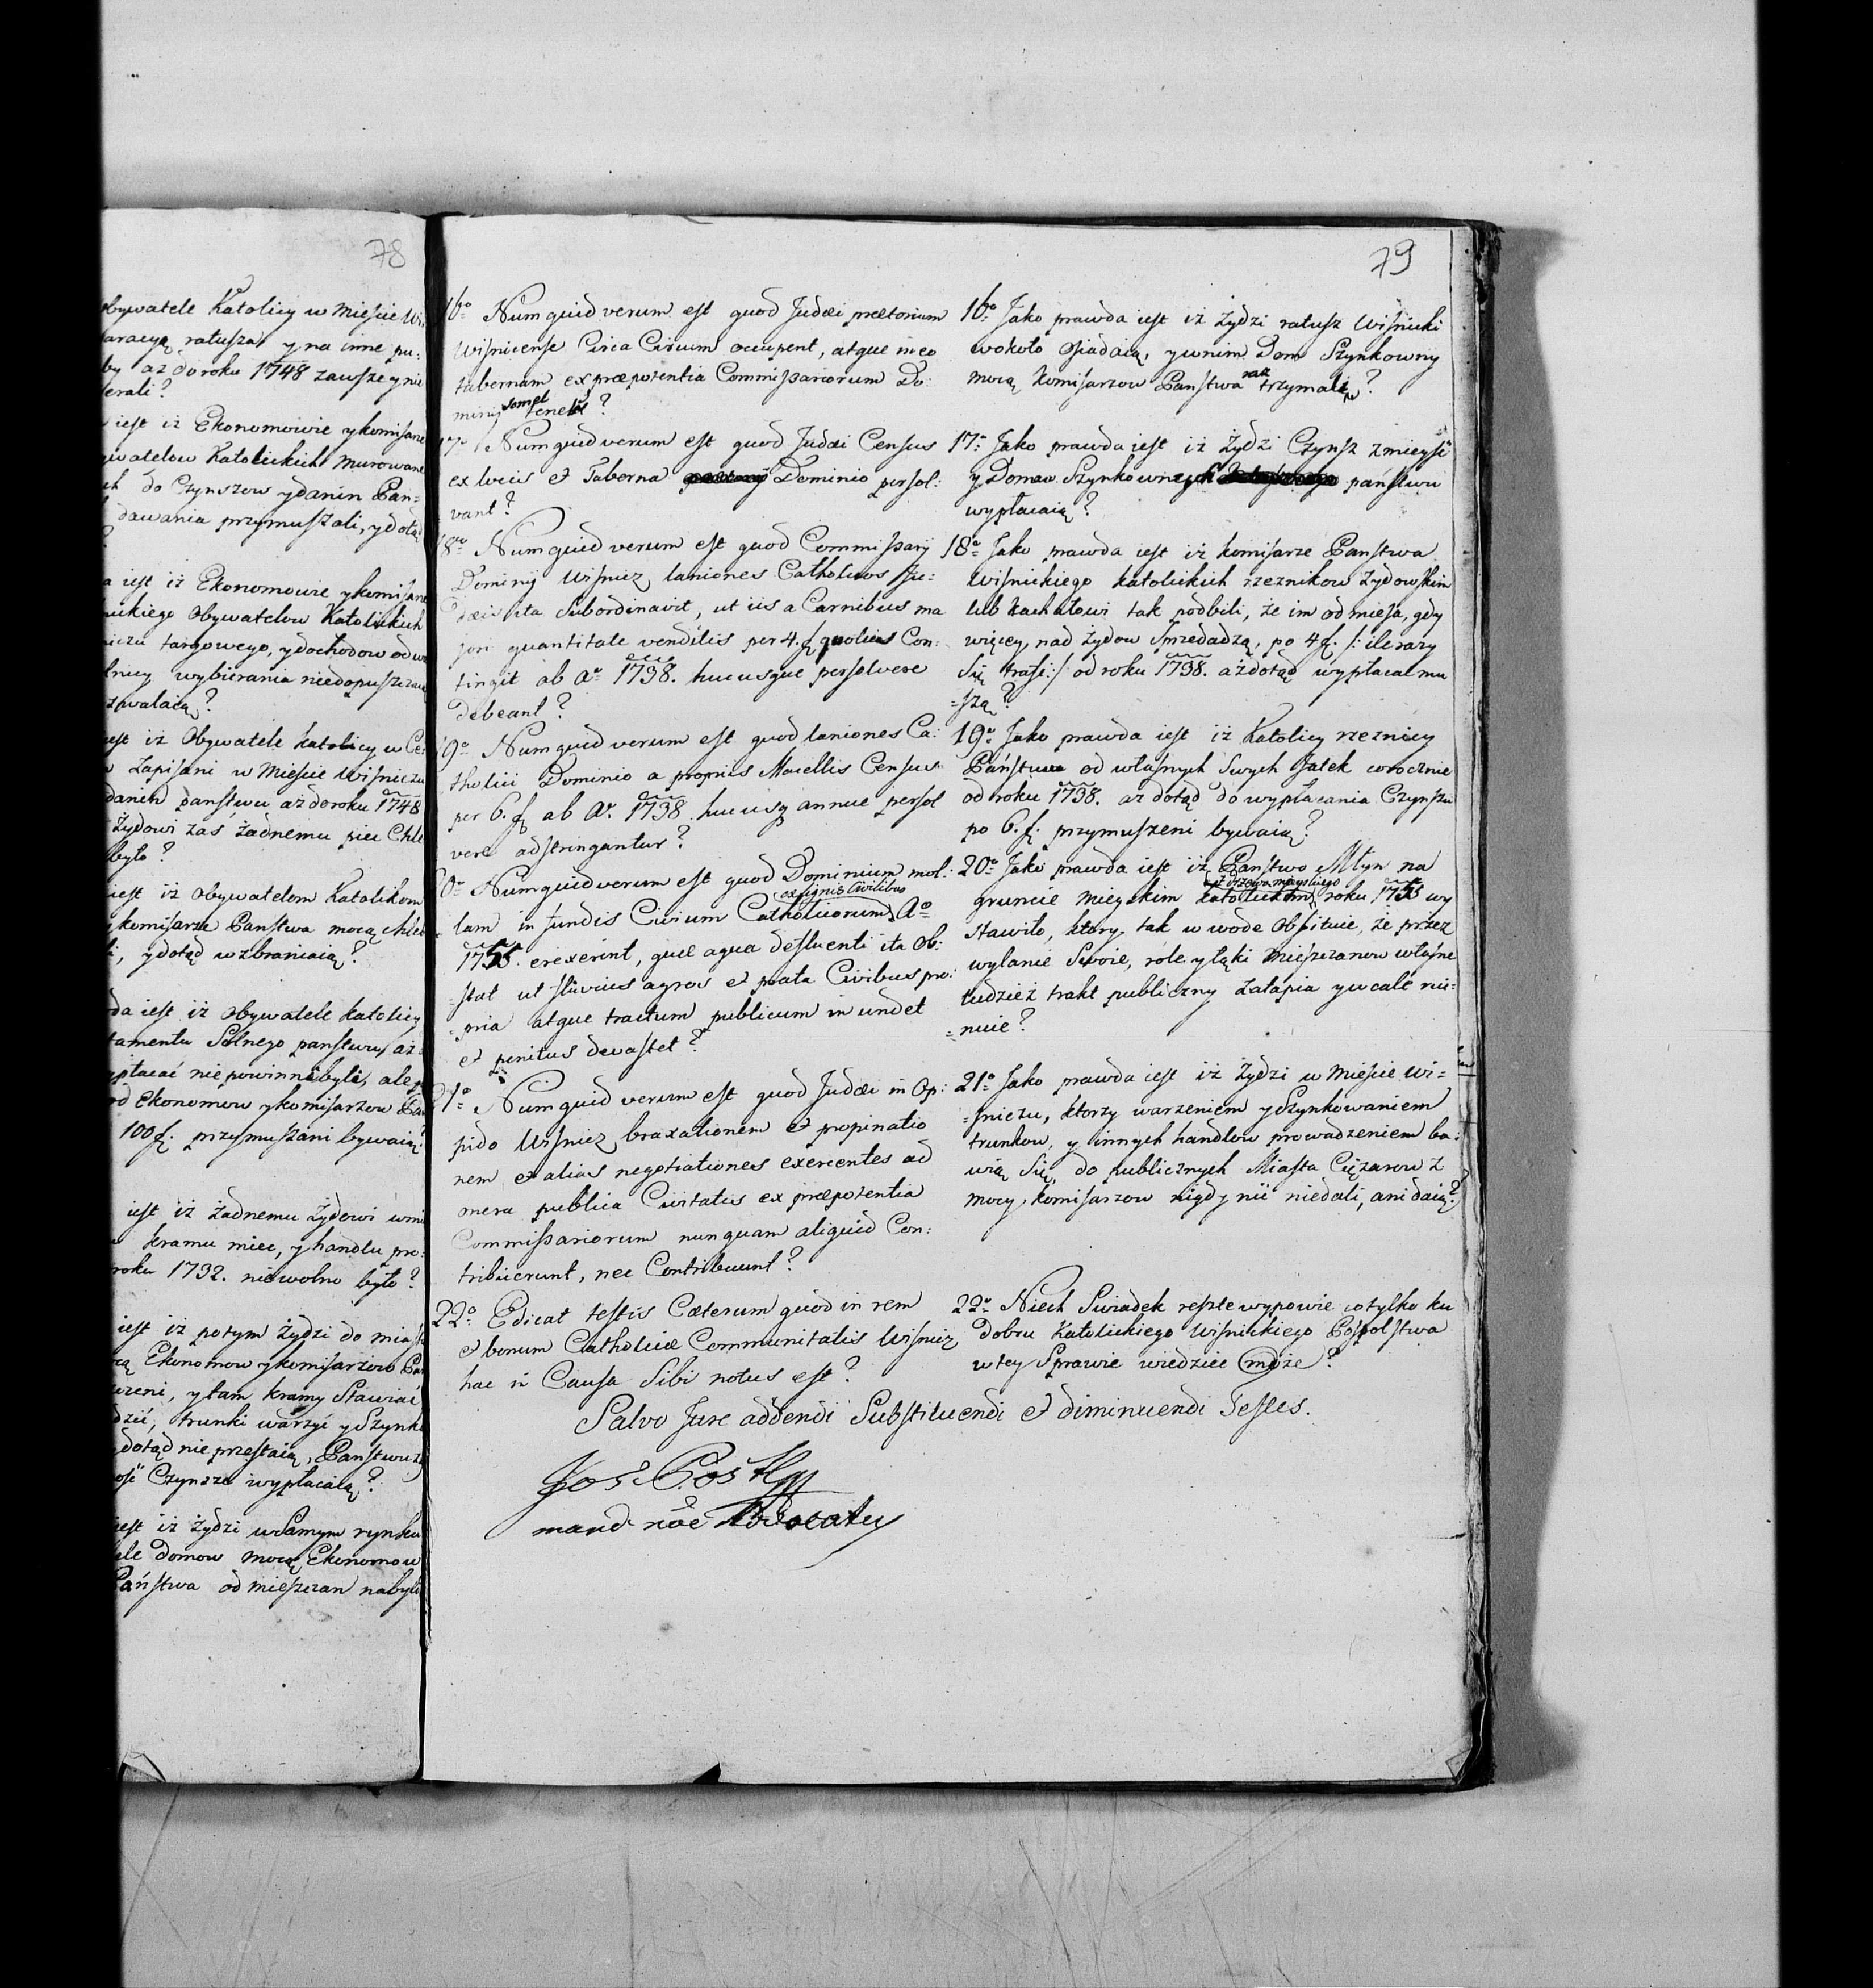 78
obywatele Katolicy w Mieście Wi
aracyą ratusza y na inne pu:
by aż do roku 1748 zawsze y nie
erali?
iest iż Ekonomowie y komisarze
watelow Katolickich murowane
ch do Czynszow y danin Pań=
dawania przymuszali, y dotąd
a iest iż Ekonomowie y komisarze
nickiego Obywatelow Katolickich
targowego, y dochodow od
wybierania niedopuszczaią
zwalaią?
iest iż Obywatele Katolicy w Ce:
Zapisani w Mieście Wiśniczu
danin państwu aż do roku 1748
Żydowi zaś żadnemu piec Chle
było?
iest iż Obywatelom Katolikom
komisarze Państwa mocą chleb
y dotąd wzbraniaią?
da iest iż obywatele katolicy
tamentu Solnego państwu aż
płacać nie powinni byli, ale
od Ekonomow y komisarzow Pań
100 f. przymuszani bywaią?
iest iż żadnemu Żydowi w mi
kramu miec, y handlu pro:
roku 1732. niewolno było?
iest iż potym Żydzi do miast
cą Ekonomow y komisarzow Pań
y tam kramy Stawiać
dzić, trunki warzyć y Szynk
dotąd nie przestaią, Państwu z
Czynsze wypłacaią?
iest iż Żydzi w Samym rynku
ele Domow mocą Ekonomow
Państwa od mieszczan nabyli
79
16o Numquid verum est quod Judæi prætorium
Wisnicense Circa Circum occupent, atque in eo
tabernam ex præpotentia Commissariorum Do:
minij semel tene ?
17 Numquid verum est quod Judæi Census
ex locis et Taberna Dominio persol:
vant?
18vo Numquid verum est quod Commissarij
Dominij Wisnicz laniones Catholicos Ju:
dæis ita Subordinavit, ut iis a Carnibus ma
jori quantitate venditis per 4. f quoties Con:
tingit ab Ao 1738. hucusque persolvere
debeant?
19o Numquid verum est quod laniones Ca:
tholici Dominio a propriis Macellis Census
per 6. f ab Ao 1738 hucusq annue persol
vere adstringantur?
20o Numquid verum est quod Dominium mol:
ex lignis Civilibus
lam in fundis Civium Catholicorum Ao
1755. erexerint, quæ aqua defluenti ita Ob:
stat ut fluvius agros et prata Civibus pro:
=pria atque tractum publicum inundet
et penitus devastet?
21o Numquid verum est quod Judæi in Op:
pido Wisnicz braxationem et propinatio
nem et alias negotiationes exercentes ad
onera publica Civitatis ex præpotentia
Commissariorum nunquam aliquid Con:
tribuerunt, nec Contribuunt?
22o Edicat testis Cæterum quod in rem
et bonum Catholicæ Communitatis Wisnicz
hac in Causa Sibi notus est?
16o Jako prawda iest iż Żydzi ratusz Wiśnicki
wokoło Osiadaią, y w nim Dom Szynkowny
mocą Komisarzow Państwa raz trzymali?
17o Jako prawda iest iż Żydzi Czynsz z mieysć
y Domow Szynkownych państwu
wypłacaią?
18o Jako prawda iest iż komisarze Państwa
Wiśnickiego katolickich rzeznikow Żydowskim
lub kachałowi tak podbili, że im od mięsa, gdy
więcey, nad żydow Sprzedadzą, po 4 f. /: ile razy
Się trafi :/ od roku 1738. aż dotąd wypłacać mu
=szą?
19o Jako prawda iest iż Katolicy rzeznicy
Państwu od własnych Swych Jatek corocznie
od roku 1738. az dotąd do wypłacania Czynszu
po 6. f. przymuszeni bywaią?
20o Jako prawda iest iż Państwo Młyn na
z drzewa mieyskiego
gruncie mieyskim katolickim roku 1755 wy
stawiło, ktory tak w wodę Obfituie, że przez
wylanie Swoie, role y łąki Mieszczanow własne
tudzież trakt publiczny zatapia y wcale rui=
=nuie?
21o Jako prawda iest iż Żydzi w Mieście Wi=
=śniczu, ktorzy warzeniem y Szynkowaniem
trunkow, y innych handlow prowadzeniem ba:
wią Się, do publicznych Miasta Ciężarow z
mocy komisarzow nigdy nic niedali, ani daią?
22o Niech Swiadek resztę wypowie co tylko ku
dobru Katolickiego Wiśnickiego Pospolstwa
w tey Sprawie wiedziec może?
Salvo Jure addendi Substituendi et diminuendi Testes.
Jos
mand nõe Advocatus